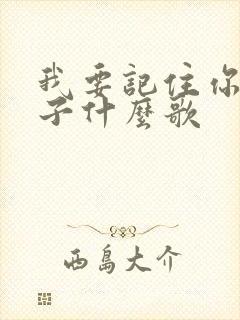 我要記住你
子什麼歌
西島大介